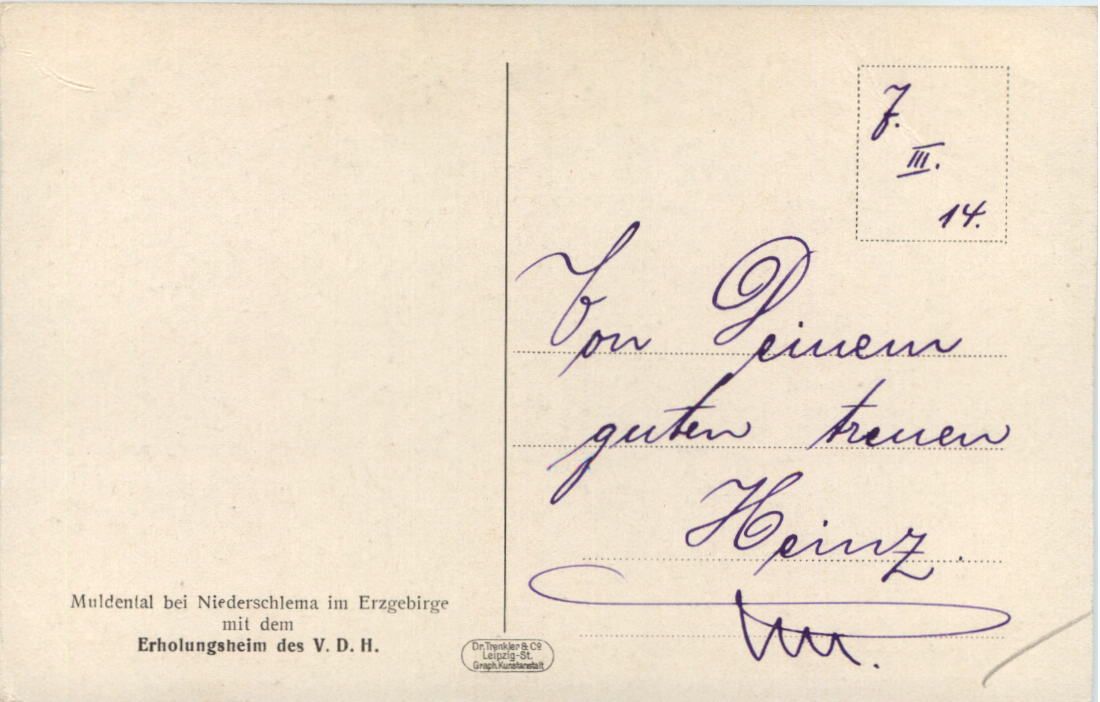 7.
III.
14.
Von Deinem
guten treuen
Heinz.
Muldental bei Niederschlema im Erzgebirge
mit dem
Erholungsheim des V. D. H.
Dr. Trenkler & Co
Leipzig-St.
Graph. Kunstanstalt